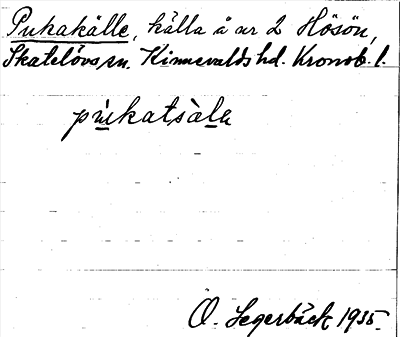 Pukakälle, källa å ar 2 Hösön,
Skatelövs sn. Kinnevalds hd. Kronob. l.
pukatsäla
O. Segerbäck 1935